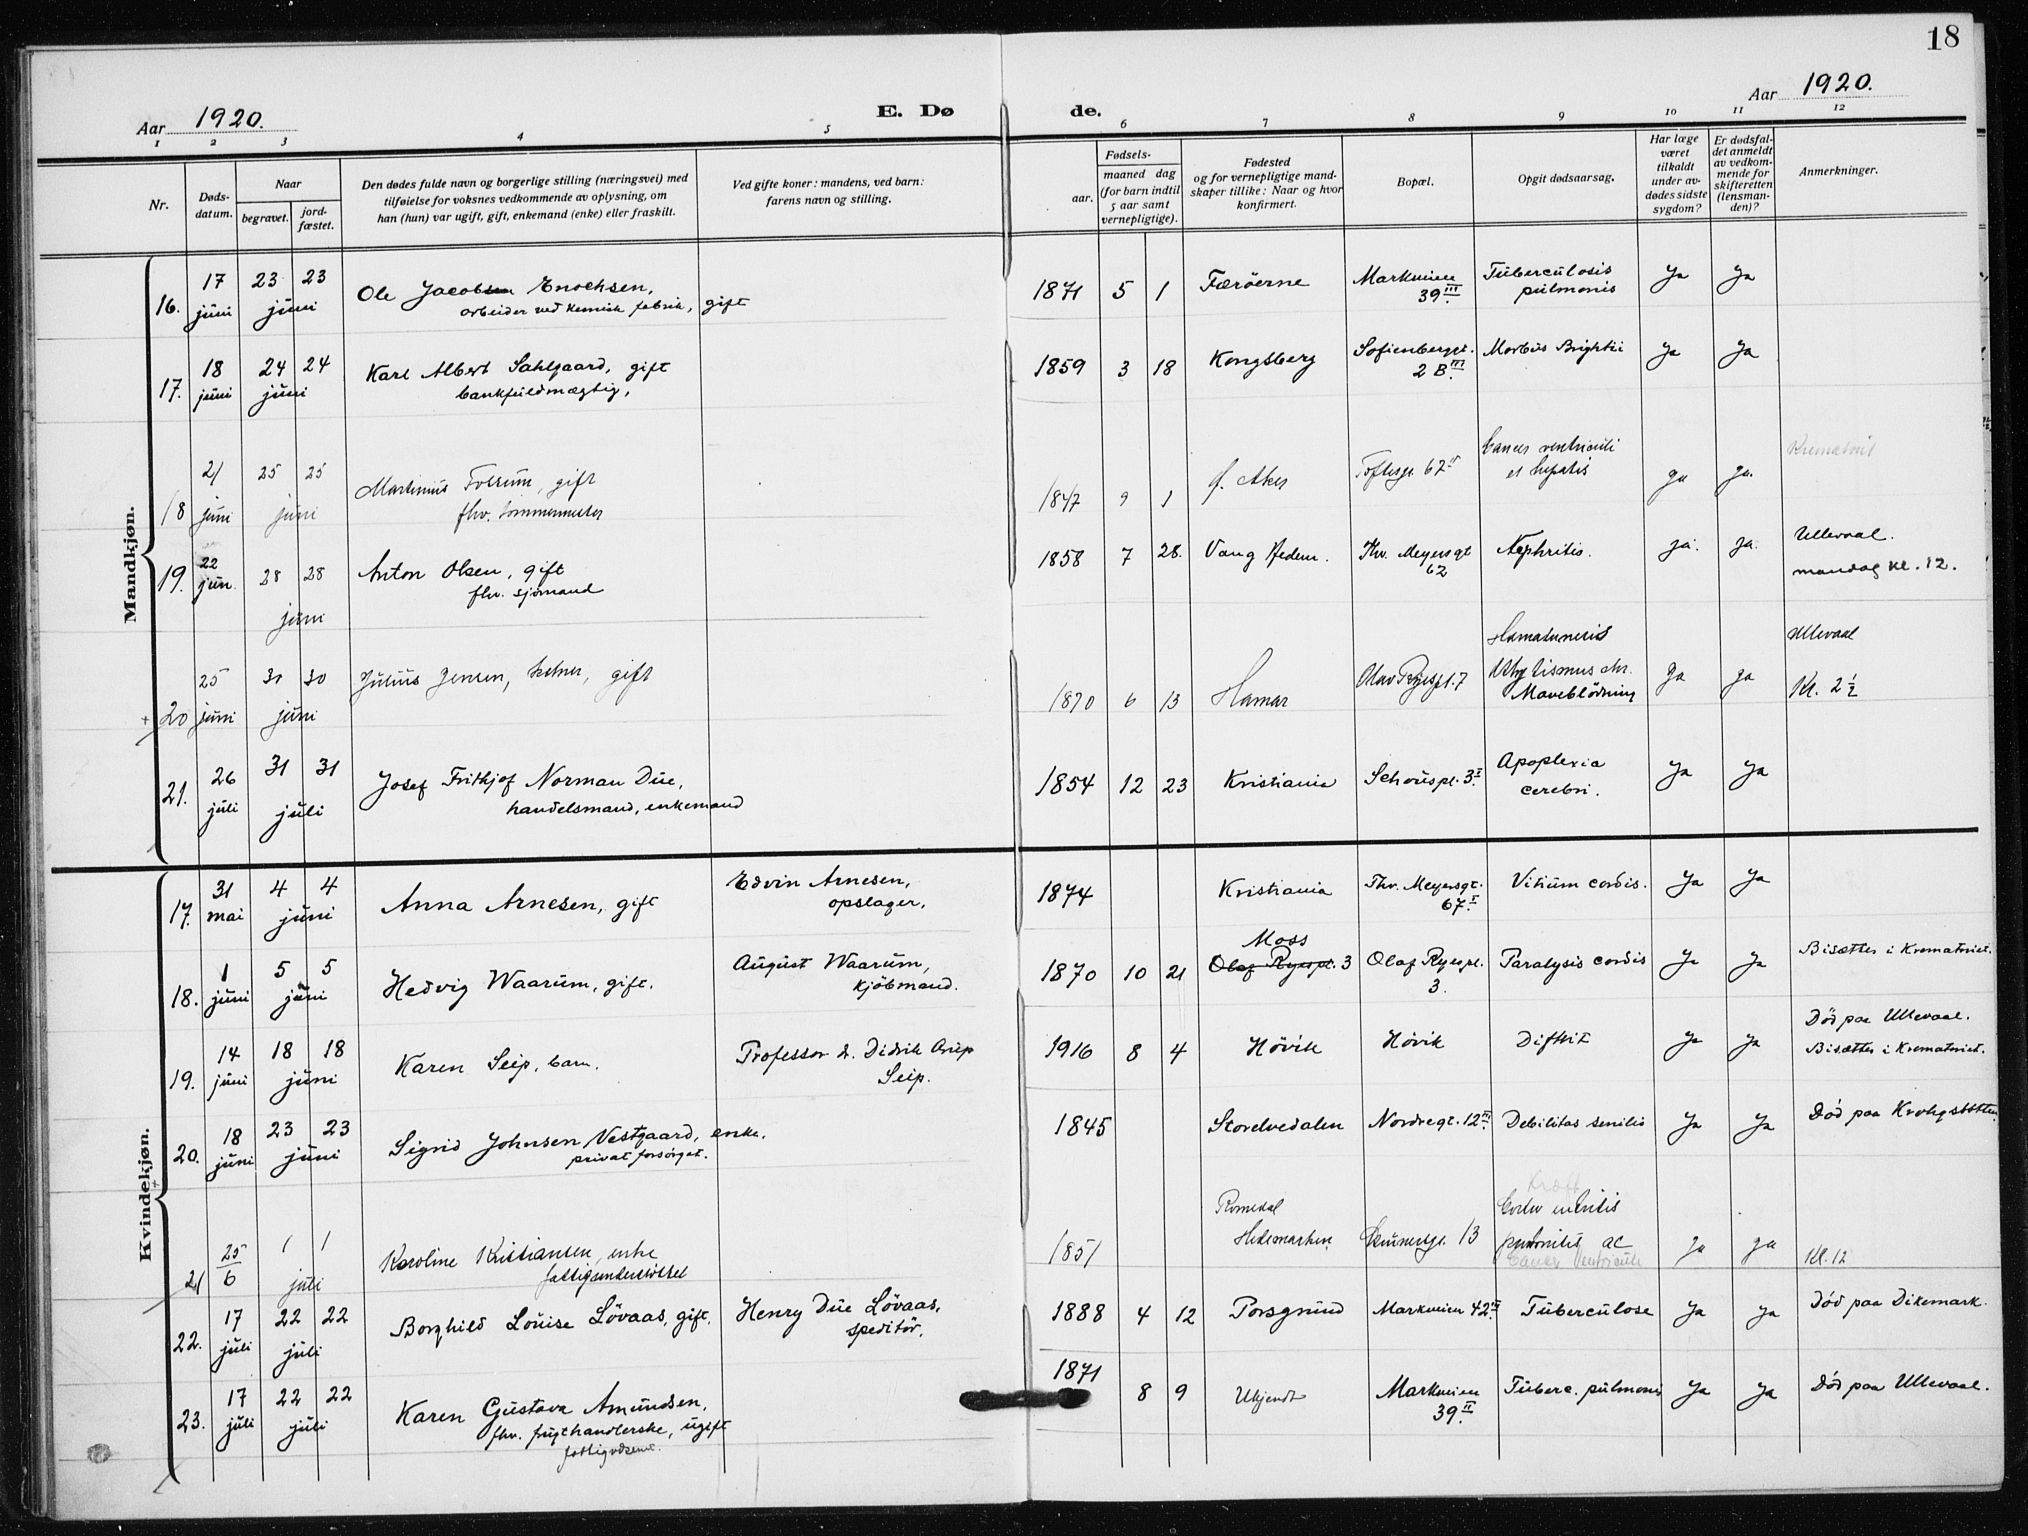 18
Aar 1920.
E. Dø
de.
Aar 1920.
1 2 3 4 5 6 7 8 9 10 11 12
Nr.
Døds-
datum.
Naar
begravet.
jord-
fæstet.
Den dødes fulde navn og borgerlige stilling (næringsvei) med
tilføielse for voksnes vedkommende av oplysning, om
han (hun) var ugift, gift, enkemand (enke) eller fraskilt.
Ved gifte koner: mandens, ved barn:
farens navn og stilling.
Fødsels-
aar.
maaned dag
(for barn indtil
5 aar samt
vernepligtige).
Fødested
og for vernepligtige mand-
skaper tillike: Naar og hvor
konfirmert.
Bopæl.
Opgit dødsaarsag.
Har læge
været
tilkaldt
under av-
dødes sidste
sygdom?
Er dødsfal-
det anmeldt
av vedkom-
mende for
skifteretten
(lensman-
den)?
Anmerkninger.
Mandkjøn.
16. 17 juni 23 23 juni Ole Jacobsen Enochsen, 1871 5 1 Færøerne Markveien Tuberculosis Ja Ja
arbeider ved kemisk fabrik, gift 39 III pulmonis
17. 18 juni 24 24 juni Karl Albert Sahlgaard, gift 1859 3 18 Kongsberg Sofienberggt. Morbus Brightii Ja Ja
bankfuldmægtig, 2 B. III
18 21 juni 25 25 juni Martinius Folrum, gift 1847 9 1 Ø. Aker Toftesgt. 67 II Cancer ventriculi ja ja. Krematoriet
fhv. tømmermester et hepatis
19. 22 jun. 28 28 juni Anton Olsen, gift 1858 7 28. Vang Hedem. Thv. Meyersgt Nephritis. ja. ja. Ullevaal.
fhv. sjömand 62 mandag kl. 12.
20 25 juni 30 30 juni Julius Jensen, kelner, gift 1870 6 13 Hamar Olav Ryespl. 7 Hæmatemesis Ja ja Ullevaal
chr.
Maveblödning Kl. 2 1/2
21. 26 juli 31 31 juli Josef Frithjof Norman Due, 1854 12 23 Kristiania Schouspl. 3 I Apoplexia Ja Ja
handelsmand, enkemand cerebri.
Kvindekjøn.
17. 31 mai 4 4 juni Anna Arnesen, gift Edvin Arnesen, 1874 Kristiania Thv. Meyersgt. Vitium cordis. Ja Ja
opslager. 67. I
18. 1 juni 5 5 juni Hedvig Waarum, gift. August Waarum, 1870 10 21 Moss Olaf Ryespl. 3 Olaf Ryespl. Paralysis cordis Ja Ja Bisættes i Krematoriet.
kjöbmand. 3.
19. 14 juni 18 18 juni Karen Seip, barn. Professor d. Didrik Arup 1916 8 4 Hövik Hövik Difteit Ja Ja Död paa Ullevaal.
Seip. Bisættes i Krematoriet.
20. 18 juni 23 23 juni Sigrid Johnsen Vestgaard, enke. 1845 Storelvedalen Nordregt. 12 III Debilitas senilis Ja Ja Död paa Krohgstötten
privat forsörget.
21 25/6 1 1 juli Karoline Kristiansen, enke 1851 Romedal 13 Kræft ja ja
fattigunderstöttet Hedemarken Kl. 12
22. 17 juli 22 22 juli Borghild Louise Lövaas, gift. Henry Due Lövaas, 1888 4 12 Porsgrund Markveien 42 II Tuberculose Ja Ja Död paa Dikemark.
speditör.
23. 17 juli 22 22 juli Karen Gustava Amundsen, 1871 8 9 Ukjendt Markveien Tuberc. pulmonis Ja Ja Död paa Ullevaal.
fhv. frugthandlerske, ugift 39. II
fattigvæsenet.